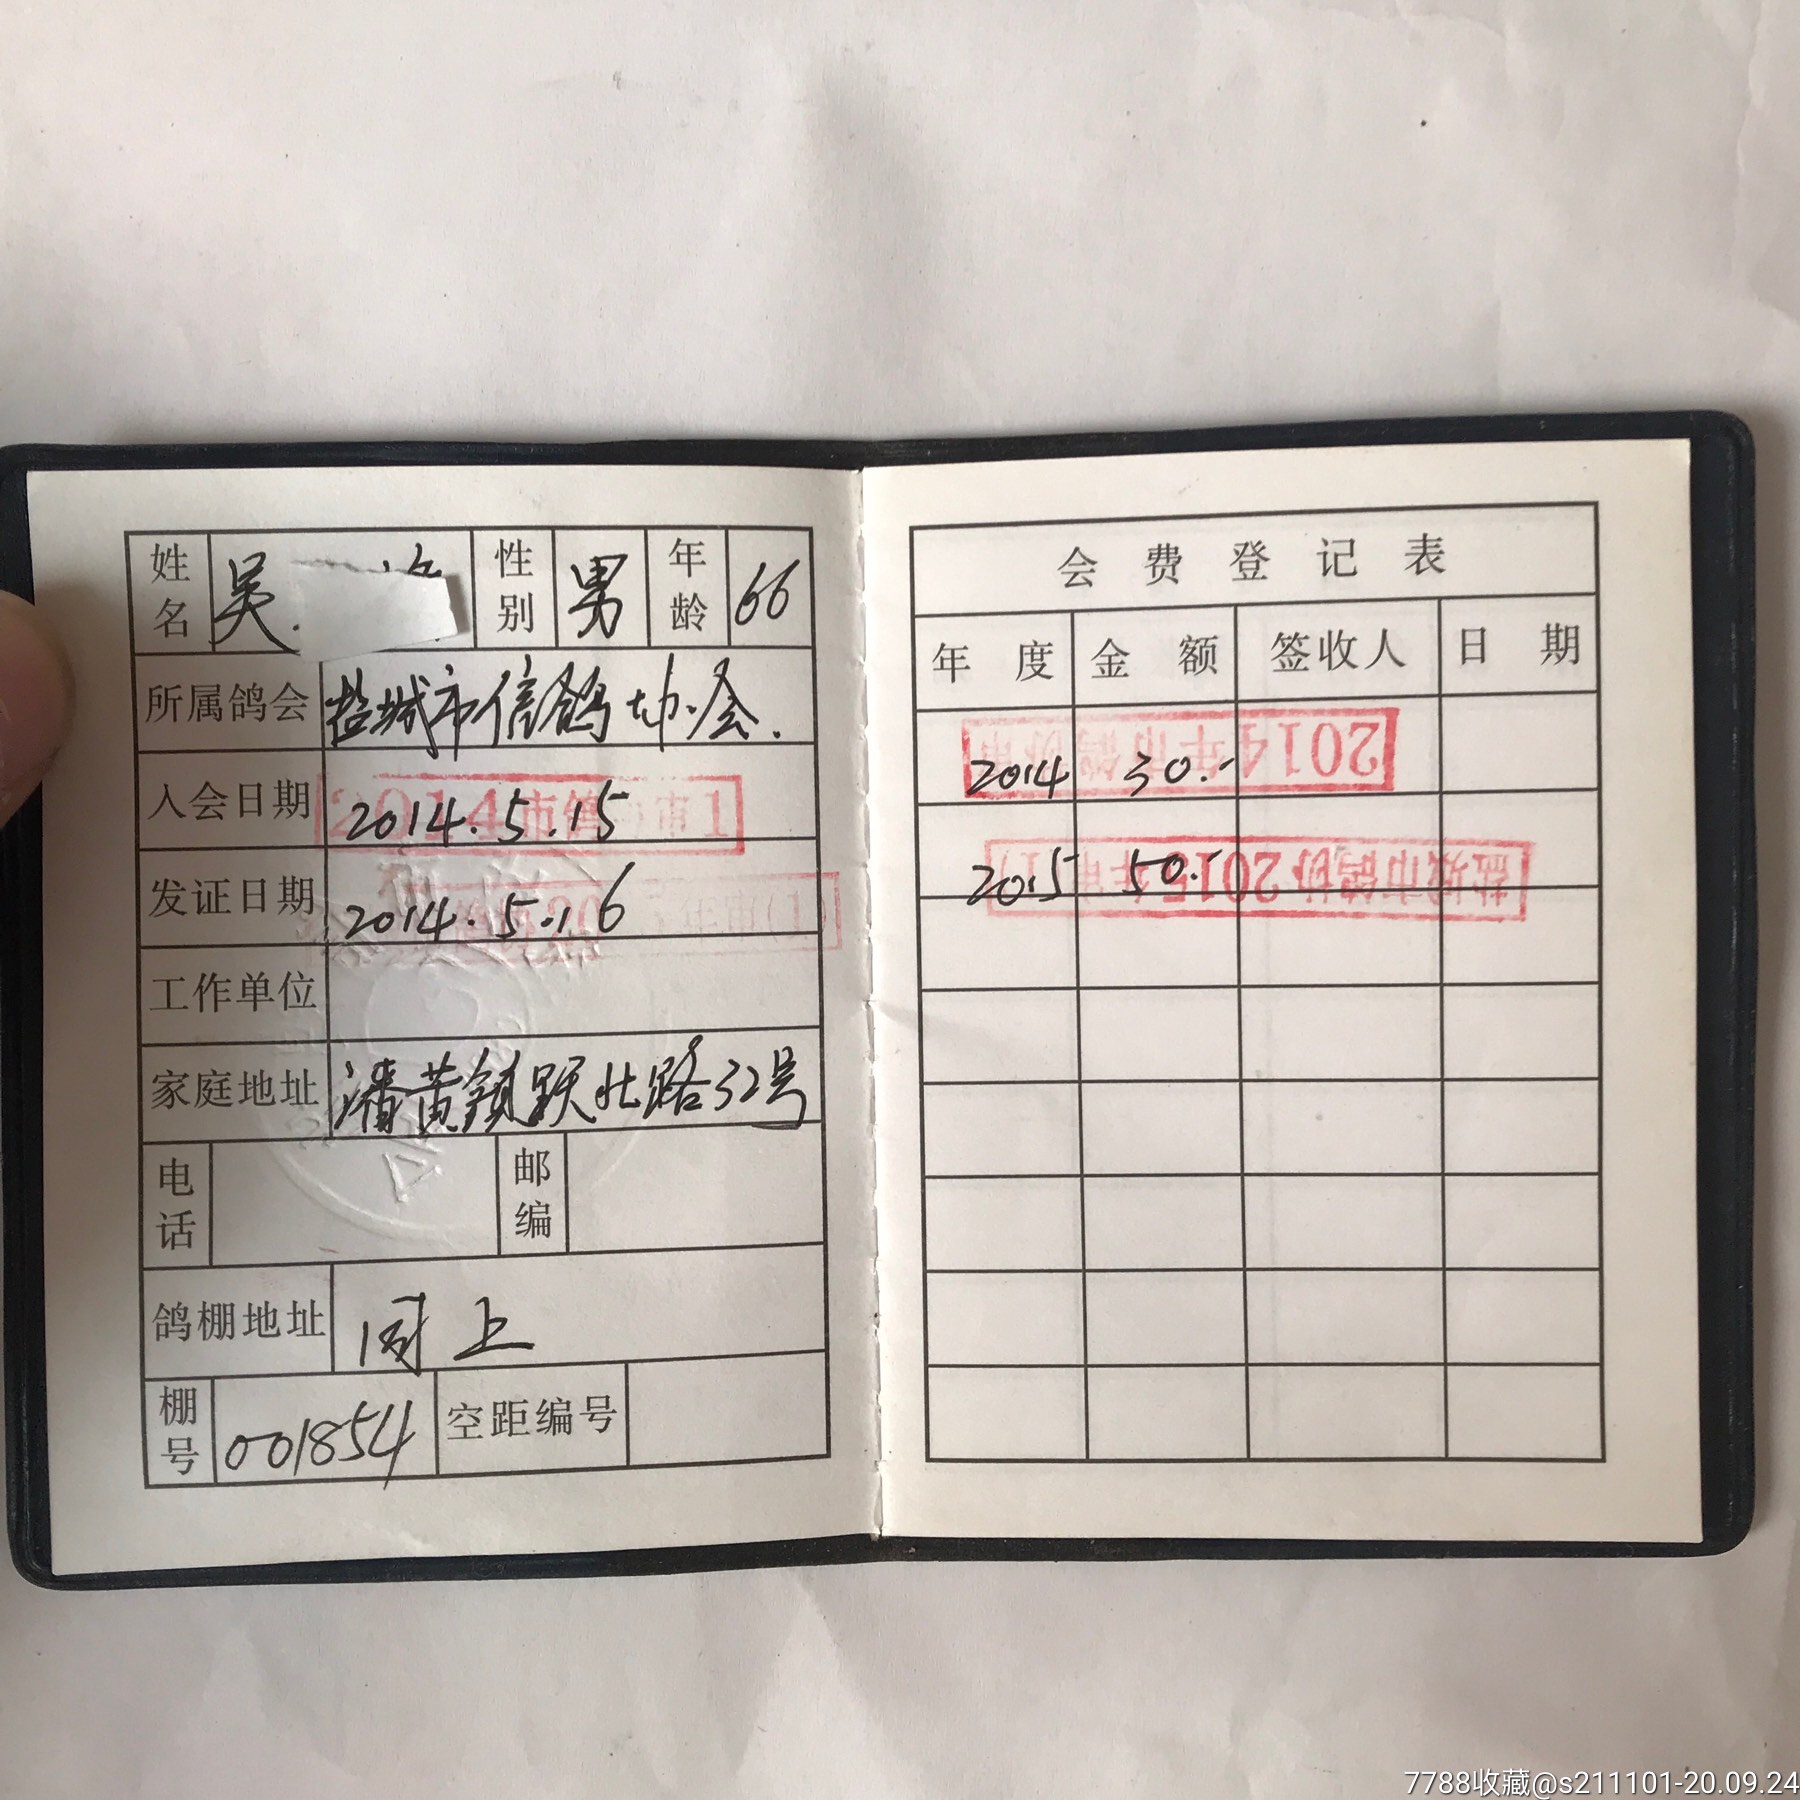 姓名 吴 性别 男 年龄 66
所属鸽会 盐城市信鸽协会.
入会日期 2014.5.15
发证日期 2014.5.16
工作单位
家庭地址 潘黄镇跃北路32号
电话 邮编
鸽棚地址 同上
棚号 001854 空距编号
会费登记表
年度 金额 签收人 日期
2014年市鸽协审
2014 30.-
盐城市鸽协2015年审(1)
2015 50.-
7788收藏@s211101-20.09.24